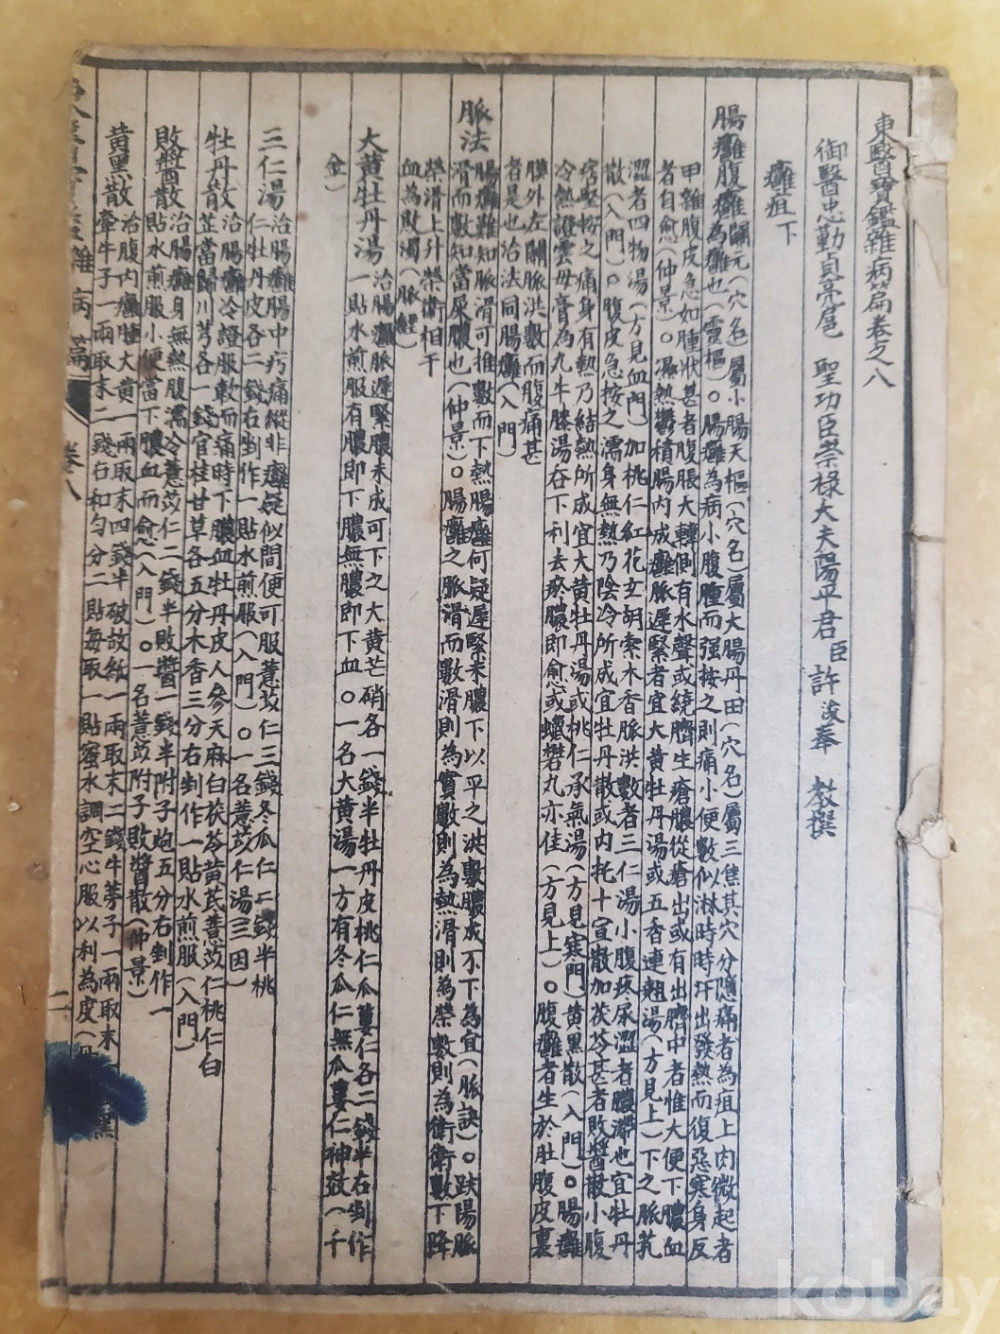 東醫寶鑑雜病篇卷之八
御醫忠勤貞亮扈 聖功臣崇祿大夫陽平君臣 許浚奉 教撰
癰疽下
腸癰腹癰
關元(穴名)屬小腸天樞(穴名)屬大腸丹田(穴名)屬三焦其穴分隱痛者為疽上肉微起者
為癰也(靈樞)○腸癰為病小腹腫而强按之則痛小便數似淋時時汗出發熱而復惡寒身反
甲錯腹皮急如腫狀甚者腹脹大轉側有水聲或繞臍生瘡膿從瘡出或有出臍中者惟大便下膿血
者自愈(仲景)○濕熱鬱積腸內成癰脈遲緊者宜大黃牡丹湯或五香連翹湯(方見上)下之脈芤
澀者四物湯(方見血門)加桃仁紅花玄胡索木香脈洪數者三仁湯小腹疼尿澀者膿滯也宜牡丹
散(入門)○腹皮急按之濡身無熱乃陰冷所成宜牡丹散或內托十宣散加茯苓甚者敗醬散小腹
痞堅按之痛身有熱乃結熱所成宜大黃牡丹湯或桃仁承氣湯(方見寒門)黃黑散(入門)○腸癰
冷熱證雲母膏為丸牛膝湯吞下利去瘀膿即愈或蠟礬丸亦佳(方見上)○腹癰者生於肚腹皮裏
膜外左關脈洪數而腹痛甚
者是也治法同腸癰(入門)
脈法
腸癰難知脈滑可推數而下熱腸癰何疑遲緊未膿下以平之洪數膿成不下為宜(脈訣)○趺陽脈
滑而數知當屎膿也(仲景)○腸癰之脈滑而數滑則為實數則為熱滑則為榮數則為衛衛數下降
榮滑上升榮衛相干
血為敗濁(脈經)
大黃牡丹湯
治腸癰脈遲緊膿未成可下之大黃芒硝各一錢半牡丹皮桃仁瓜蔞仁各二錢半右剉作
一貼水煎服有膿即下膿無膿即下血○一名大黃湯一方有冬瓜仁無瓜蔞仁神效(千
金)
三仁湯
治腸癰腸中㽲痛縱非癰疑似間便可服薏苡仁三錢冬瓜仁二錢半桃
仁牡丹皮各二錢右剉作一貼水煎服(入門)○一名薏苡仁湯(三因)
牡丹散
治腸癰冷證服數而痛時下膿血牡丹皮人參天麻白茯苓黃芪薏苡仁桃仁白
芷當歸川芎各一錢官桂甘草各五分木香三分右剉作一貼水煎服(入門)
敗醬散
治腸癰身無熱腹濡冷薏苡仁二錢半敗醬一錢半附子炮五分右剉作一
貼水煎服小便當下膿血而愈(入門)○一名薏苡附子敗醬散(仲景)
黃黑散
治腹內癰腫大黃一兩取末四錢半破故紙一兩取末二錢牛蒡子一兩取末
牽牛子一兩取末二錢右和勻分二貼每取一貼蜜水調空心服以利為度
雜病篇 卷八